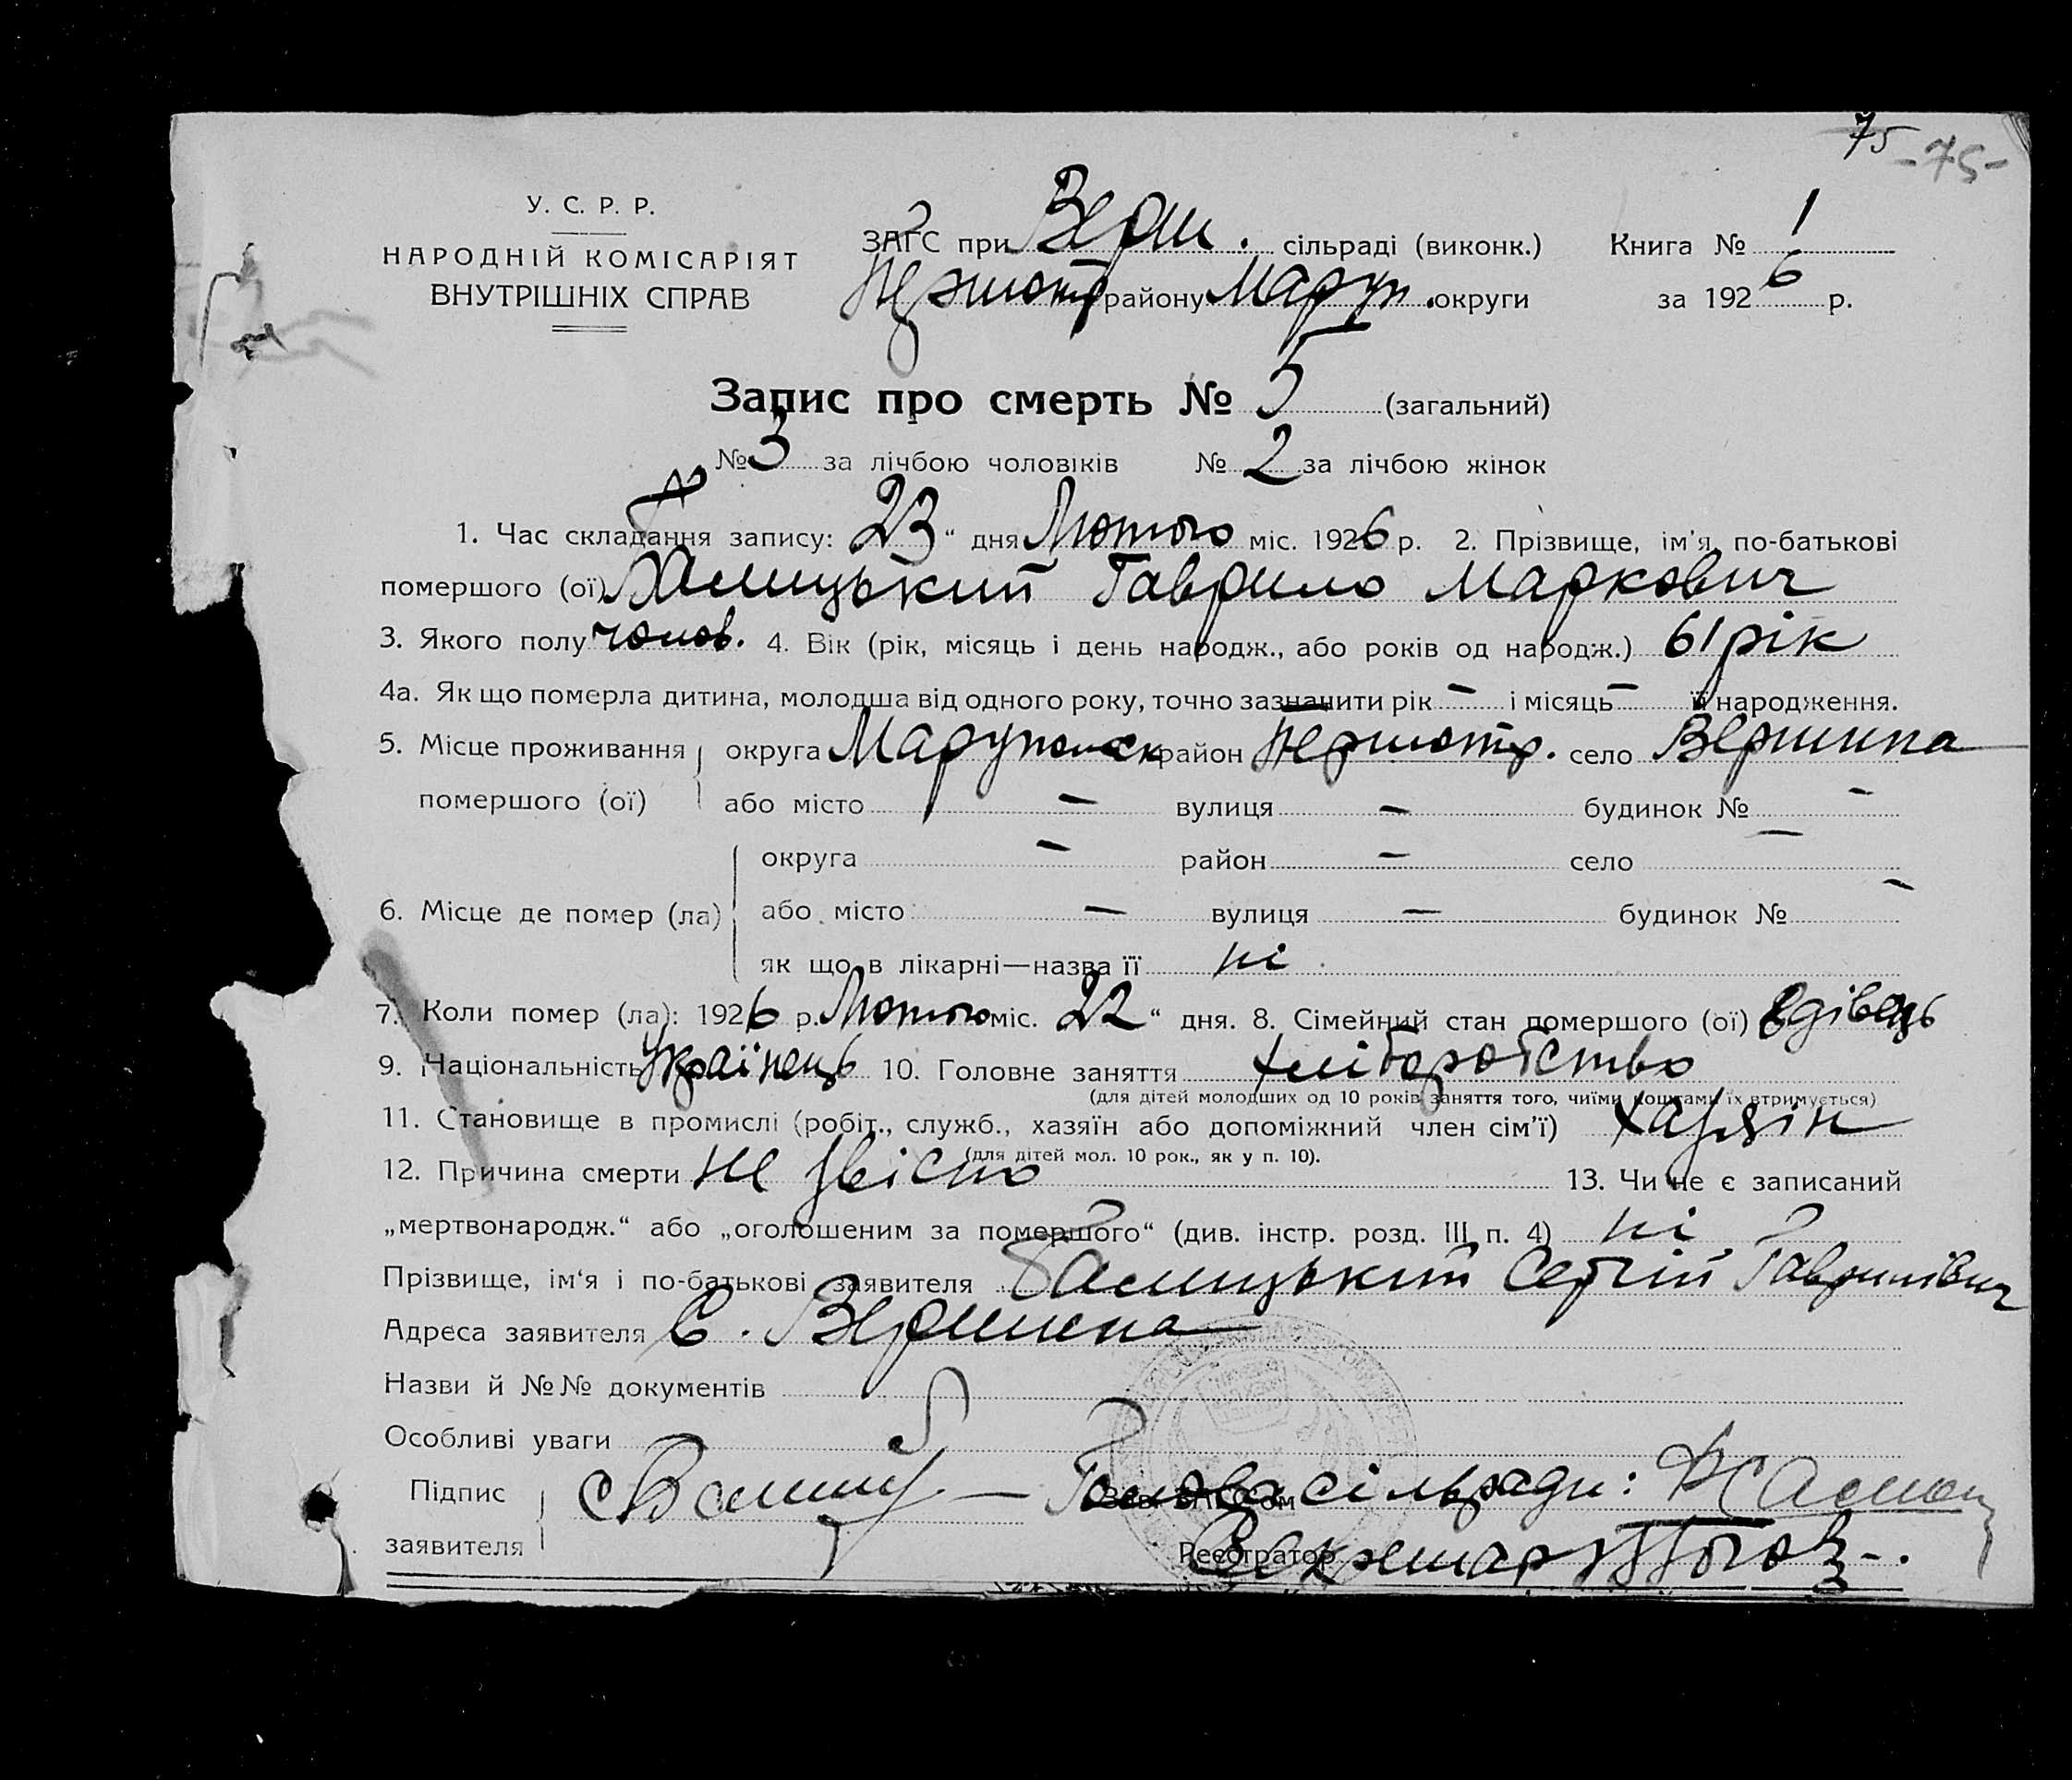 75 -75-
У. С. Р. Р.
НАРОДНІЙ КОМІСАРІЯТ
ВНУТРІШНІХ СПРАВ
ЗАГС при Верш. сільраді (виконк.) Книга № 1
Першотр району Маруп. округи за 1926 р.
Запис про смерть № 5 (загальний)
№ 3 за лічбою чоловіків № 2 за лічбою жінок
1. Час складання запису: 23 “ дня Лютого міс. 1926 р. 2. Прізвище, ім'я, по-батькові
помершого (ої) Балицький Гаврило Маркович
3. Якого полу чолов. 4. Вік (рік, місяць і день народж., або років од народж.) 61 рік
4а. Як що померла дитина, молодша від одного року, точно зазначити рік – і місяць – її народження.
5. Місце проживання помершого (ої) округа Марупольск район Першотр. село Вершина
або місто – вулиця – будинок № –
6. Місце де помер (ла) округа – район – село –
або місто – вулиця – будинок № –
як що в лікарні—назва її ні
7. Коли помер (ла): 1926 р. Лютого міс. 22 “ дня. 8. Сімейний стан помершого (ої) вдівець
9. Національність Українець 10. Головне заняття хліборобство
(для дітей молодших од 10 років заняття того, чиїми коштами їх втримується)
11. Становище в промислі (робіт., служб., хазяїн або допоміжний член сім'ї) хазяін
(для дітей мол. 10 рок., як у п. 10).
12. Причина смерти не звісно 13. Чи не є записаний
„мертвонародж.“ або „оголошеним за помершого“ (див. інстр. розд. III п. 4) ні
Прізвище, ім'я і по-батькові заявителя Балицький Сергій Гаврилівич
Адреса заявителя С. Вершина
Назви й №№ документів
Особливі уваги
Підпис заявителя Голова сільради:
Реєстратор Секретар